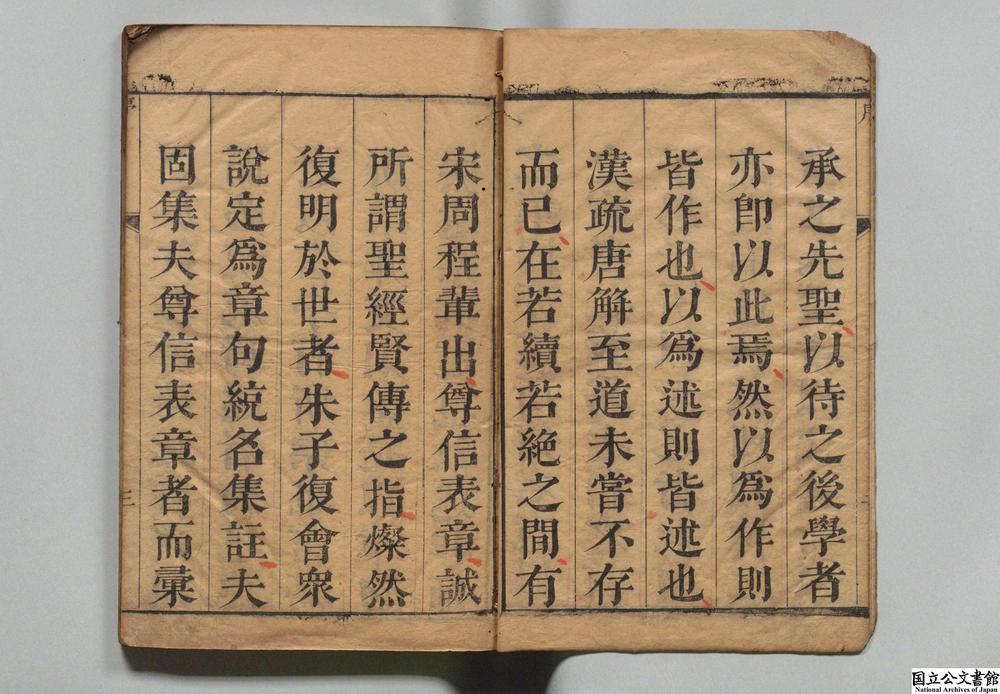 序
承之先聖以待之後學者
亦卽以此焉然以爲作則
皆作也以爲述則皆述也
漢疏唐解至道未嘗不存
而已在若續若絕之間有
宋周程輩出尊信表章誠
所謂聖經賢傳之指燦然
復明於世者朱子復會衆
說定爲章句統名集註夫
固集夫尊信表章者而彙
三
国立公文書館
National Archives of Japan